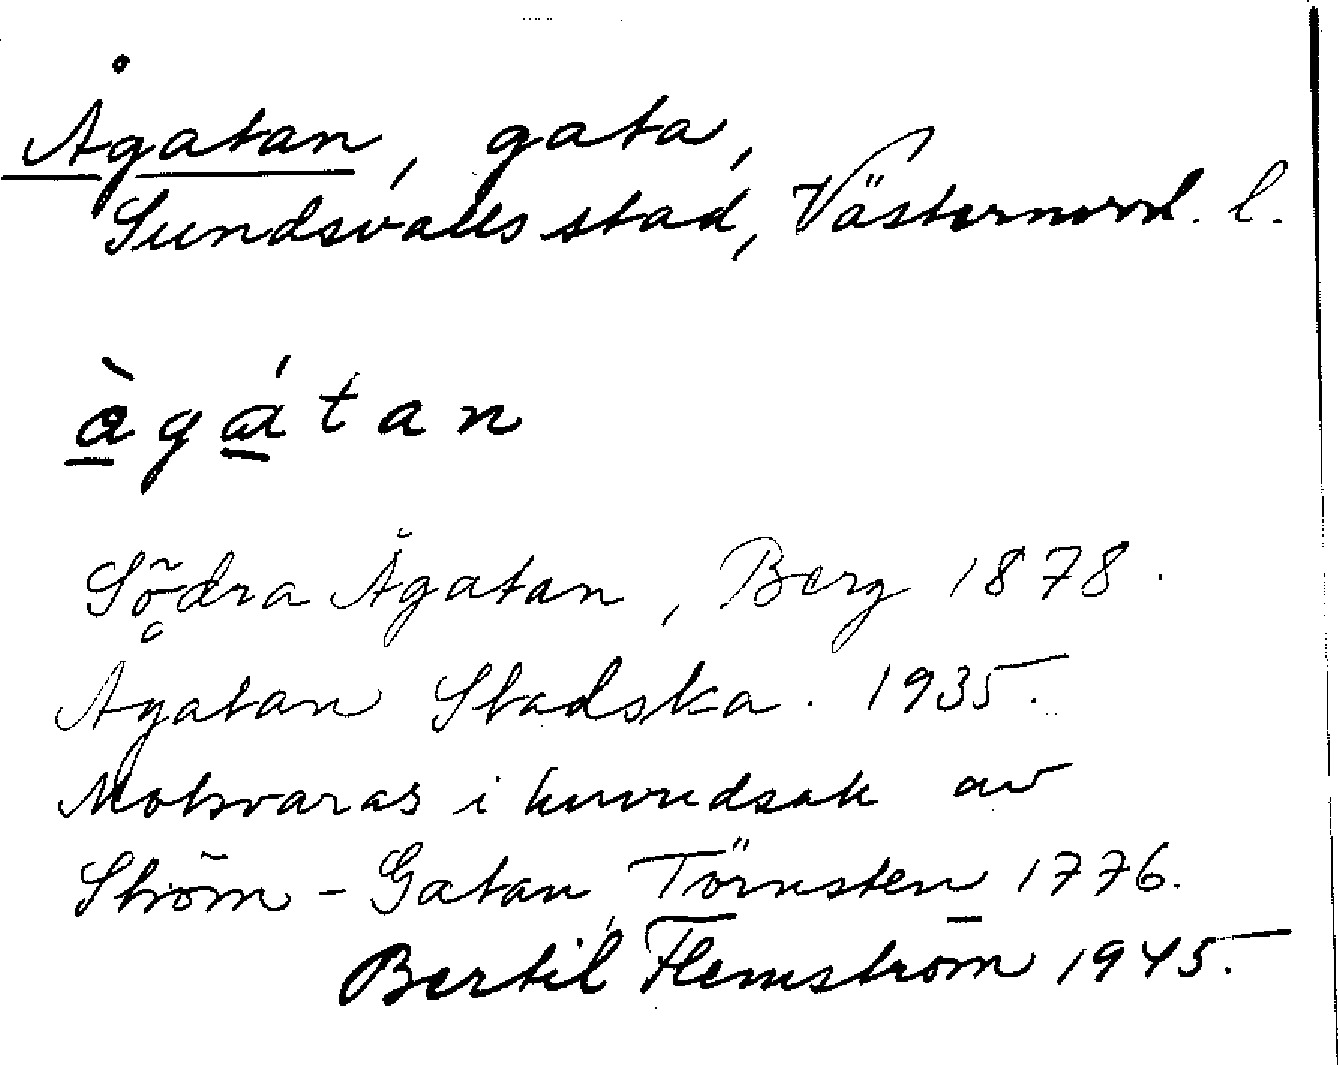 Ågatan, gata,
Sundsvalls stad, Västernorrl. l.
ågatan
Södra Ågatan, Berg 1878.
Ågatan Stadska. 1935.
Motsvaras i huvudsak av
Ström-Gatan, Törnsten 1776.
Bertil Flemström 1945.